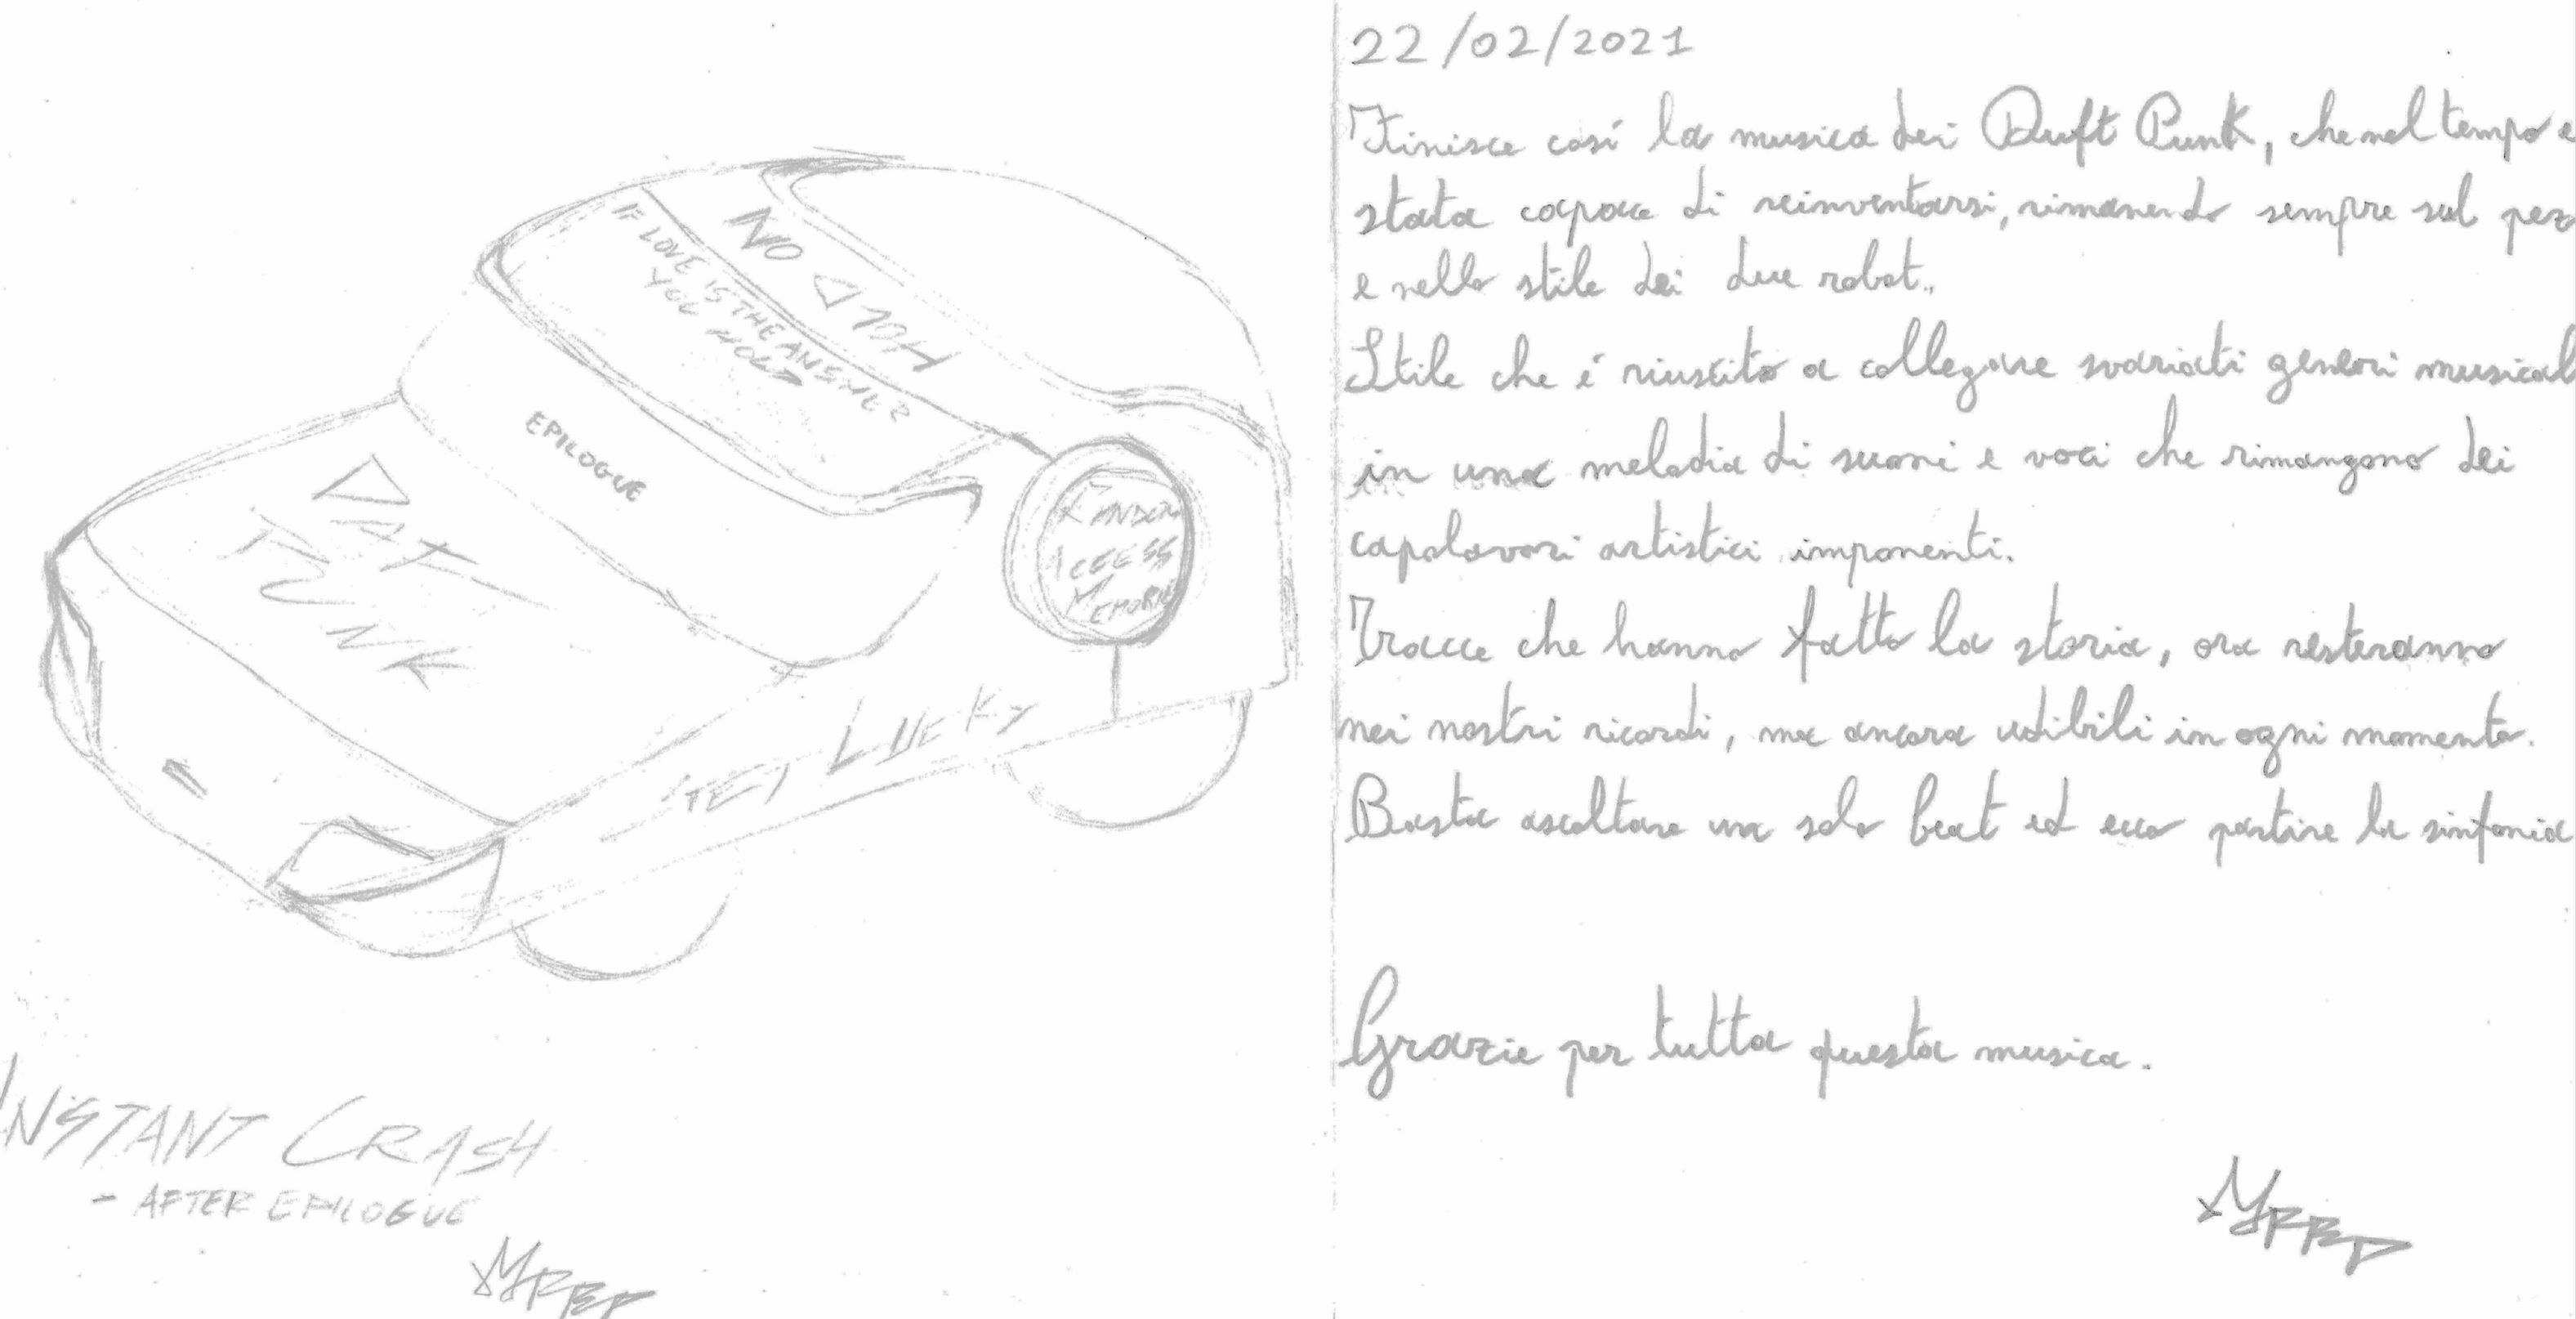 NO
IF LOVE IS THE ANSWER
YOU HOLD
EPILOGUE
DAFT
PUNK
RANDOM
ACCESS
MEMORIES
GET LUCKY
INSTANT CRASH
- AFTER EPILOGUE
22/02/2021
Finisce così la musica dei Daft Punk, che nel tempo è
stata capace di reinventarsi, rimanendo sempre sul pez
e nello stile dei due robot..
Stile che è riuscito a collegare svariati generi musical
in una melodia di suoni e voci che rimangono dei
capolavori artistici imponenti.
Tracce che hanno fatto la storia, ora resteranno
nei nostri ricordi, ma ancora udibili in ogni momento.
Basta ascoltare un solo beat ed ecco partire la sinfonia
Grazie per tutta questa musica.